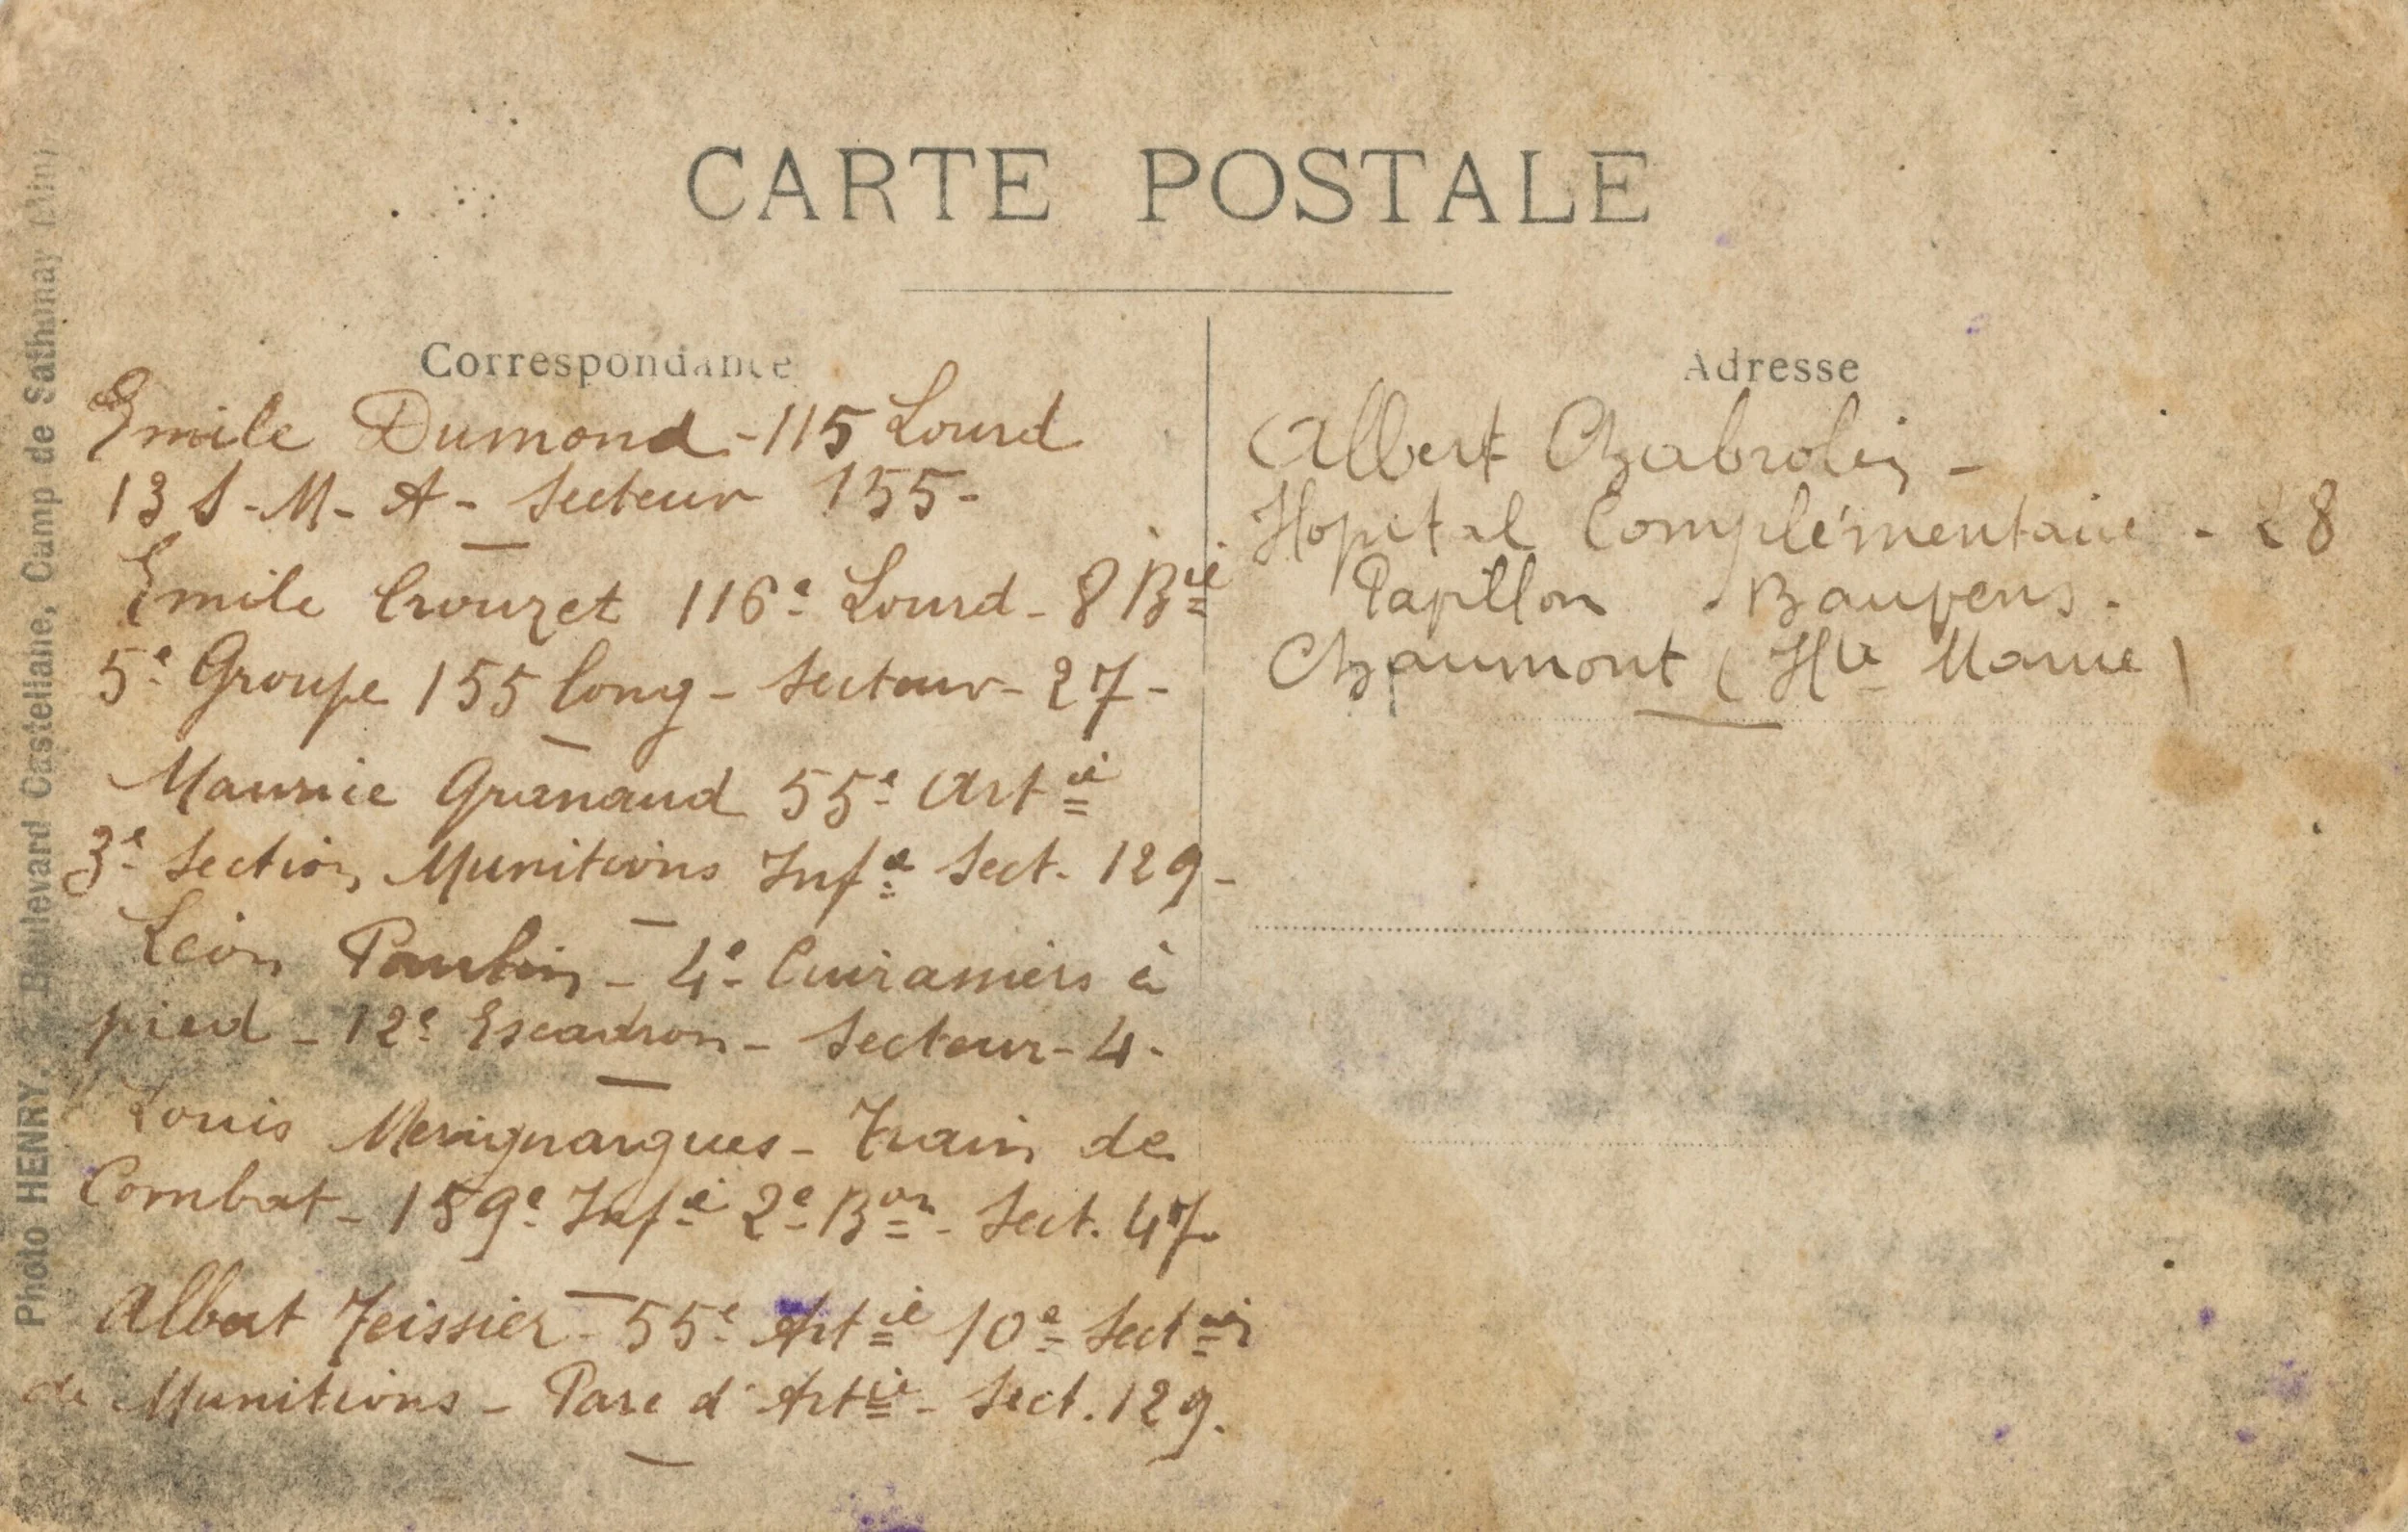 CARTE POSTALE
Correspondance
Emile Dumond - 115 Lourd
13 S-M-A- Secteur 155-
Emile Crouzet 116e Lourd - 8 Bie
5e Groupe 155 long - Secteur - 27 -
Maurice Granaud 55e Artie
3e Section Munitions Infie Sect. 129 -
Léon Paulin - 4e Cuirassiers à
pied - 12e Escadron - Secteur - 4 -
Louis Merignargues - Train de
Combat - 159e Infie 2e Bon - Sect. 47.
Albert Teissier - 55e Artie 10e Section
de Munitions - Parc d'Artie - Sect. 129.
Adresse
Albert Chabrolin -
Hopital Complémentaire - 28
Papillon
Chaumont (Hte Marne)
Photo HENRY, Boulevard Castellane, Camp de Sathonay (Ain)